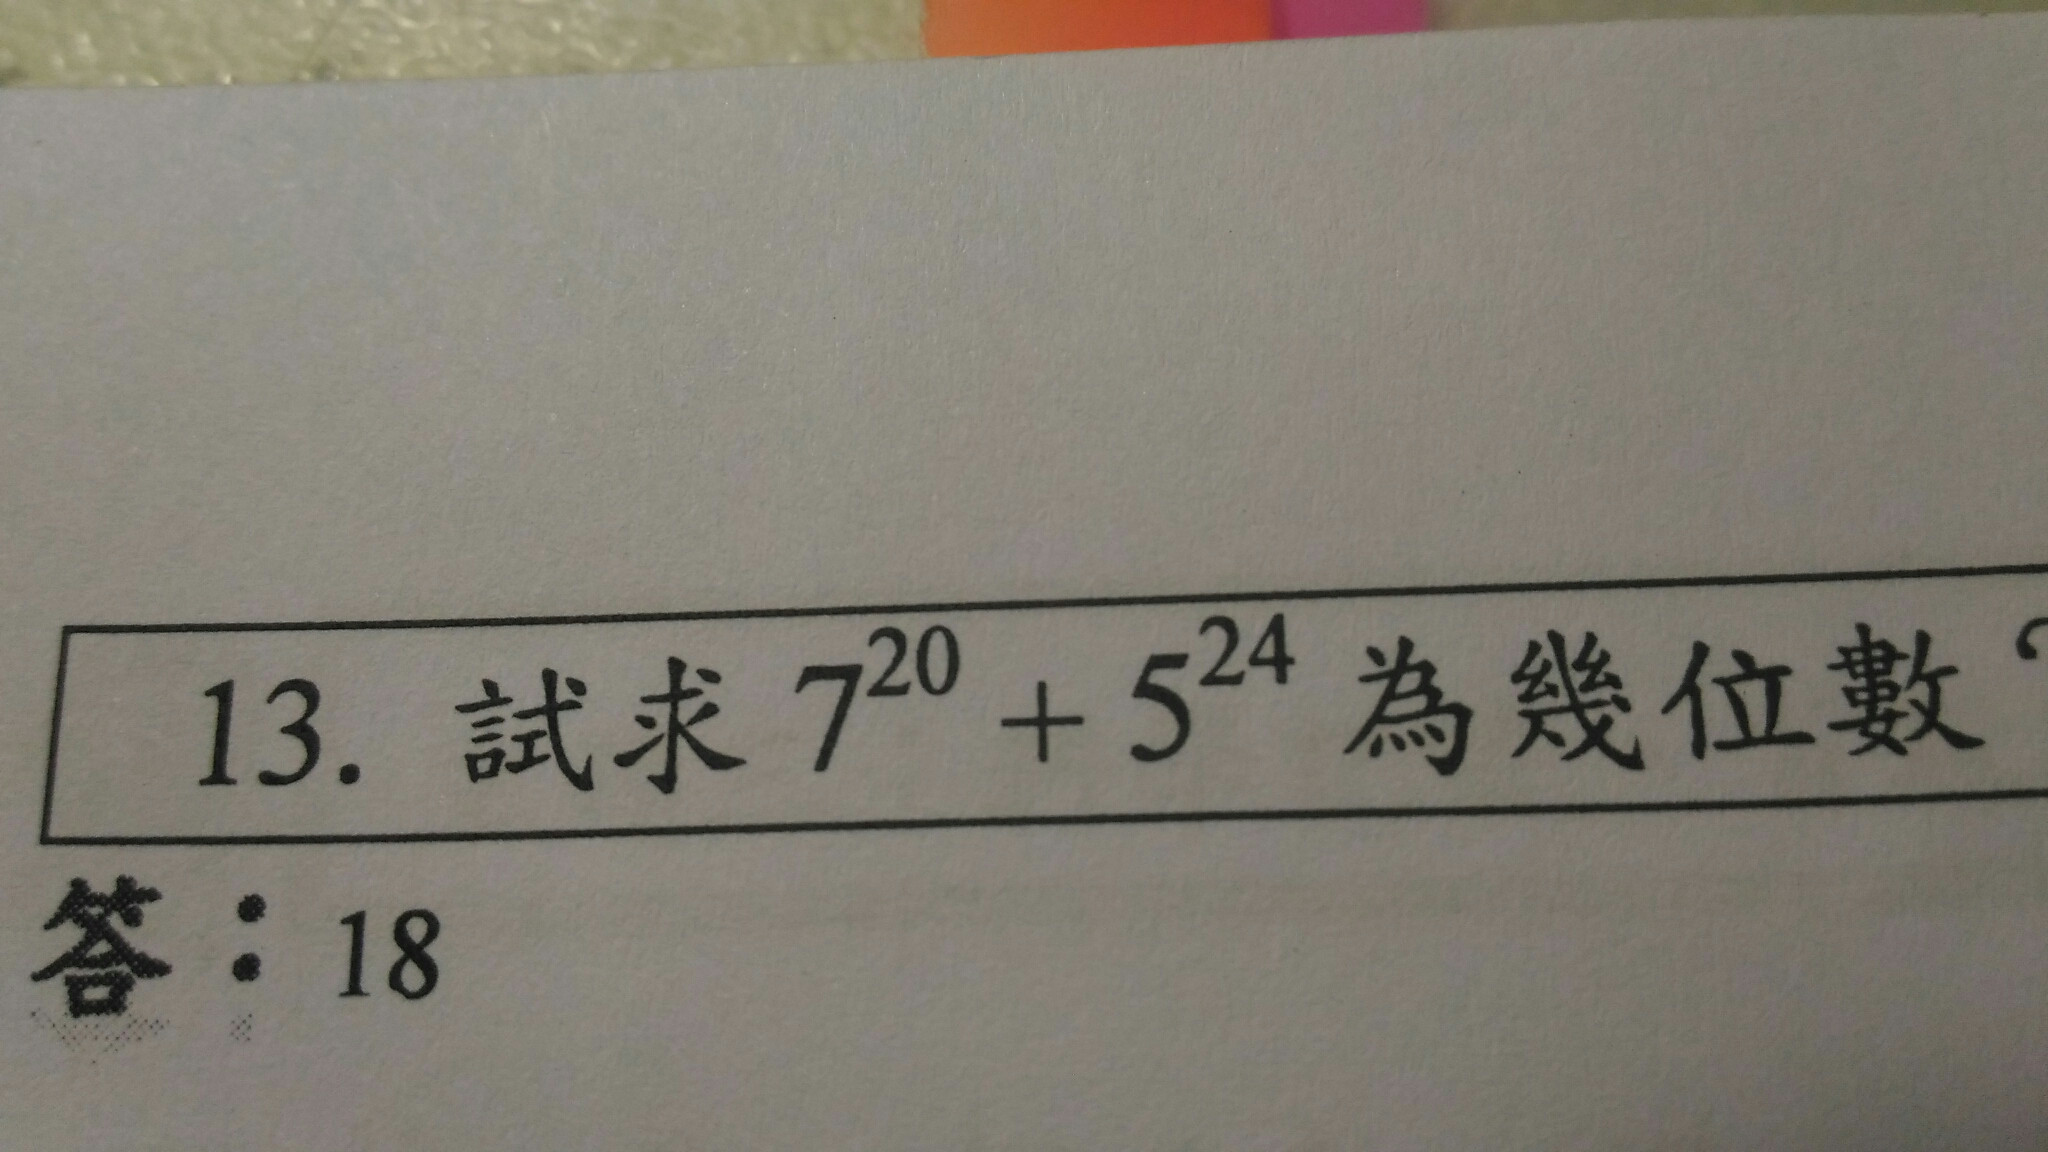 13. 試求 7²⁰ + 5²⁴ 為幾位數？
答：18